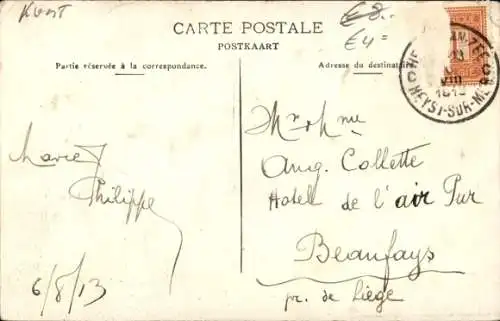 Kust
€8.-
€4=
CARTE POSTALE
POSTKAART
Partie réservée à la correspondance.
Adresse du destinataire
HEYST-SUR-MER
VIII
1913
Marie
Philippe
6/8/13
Mr & Mme
Aug. Collette
Hotel de l'air Pur
Beaufays
pr. de Liège